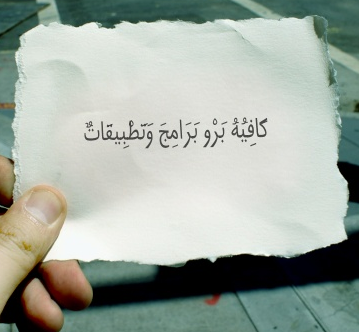 كافِيُهُ بَرْو بَرَامِجَ وَتطْبِيقاتٌ